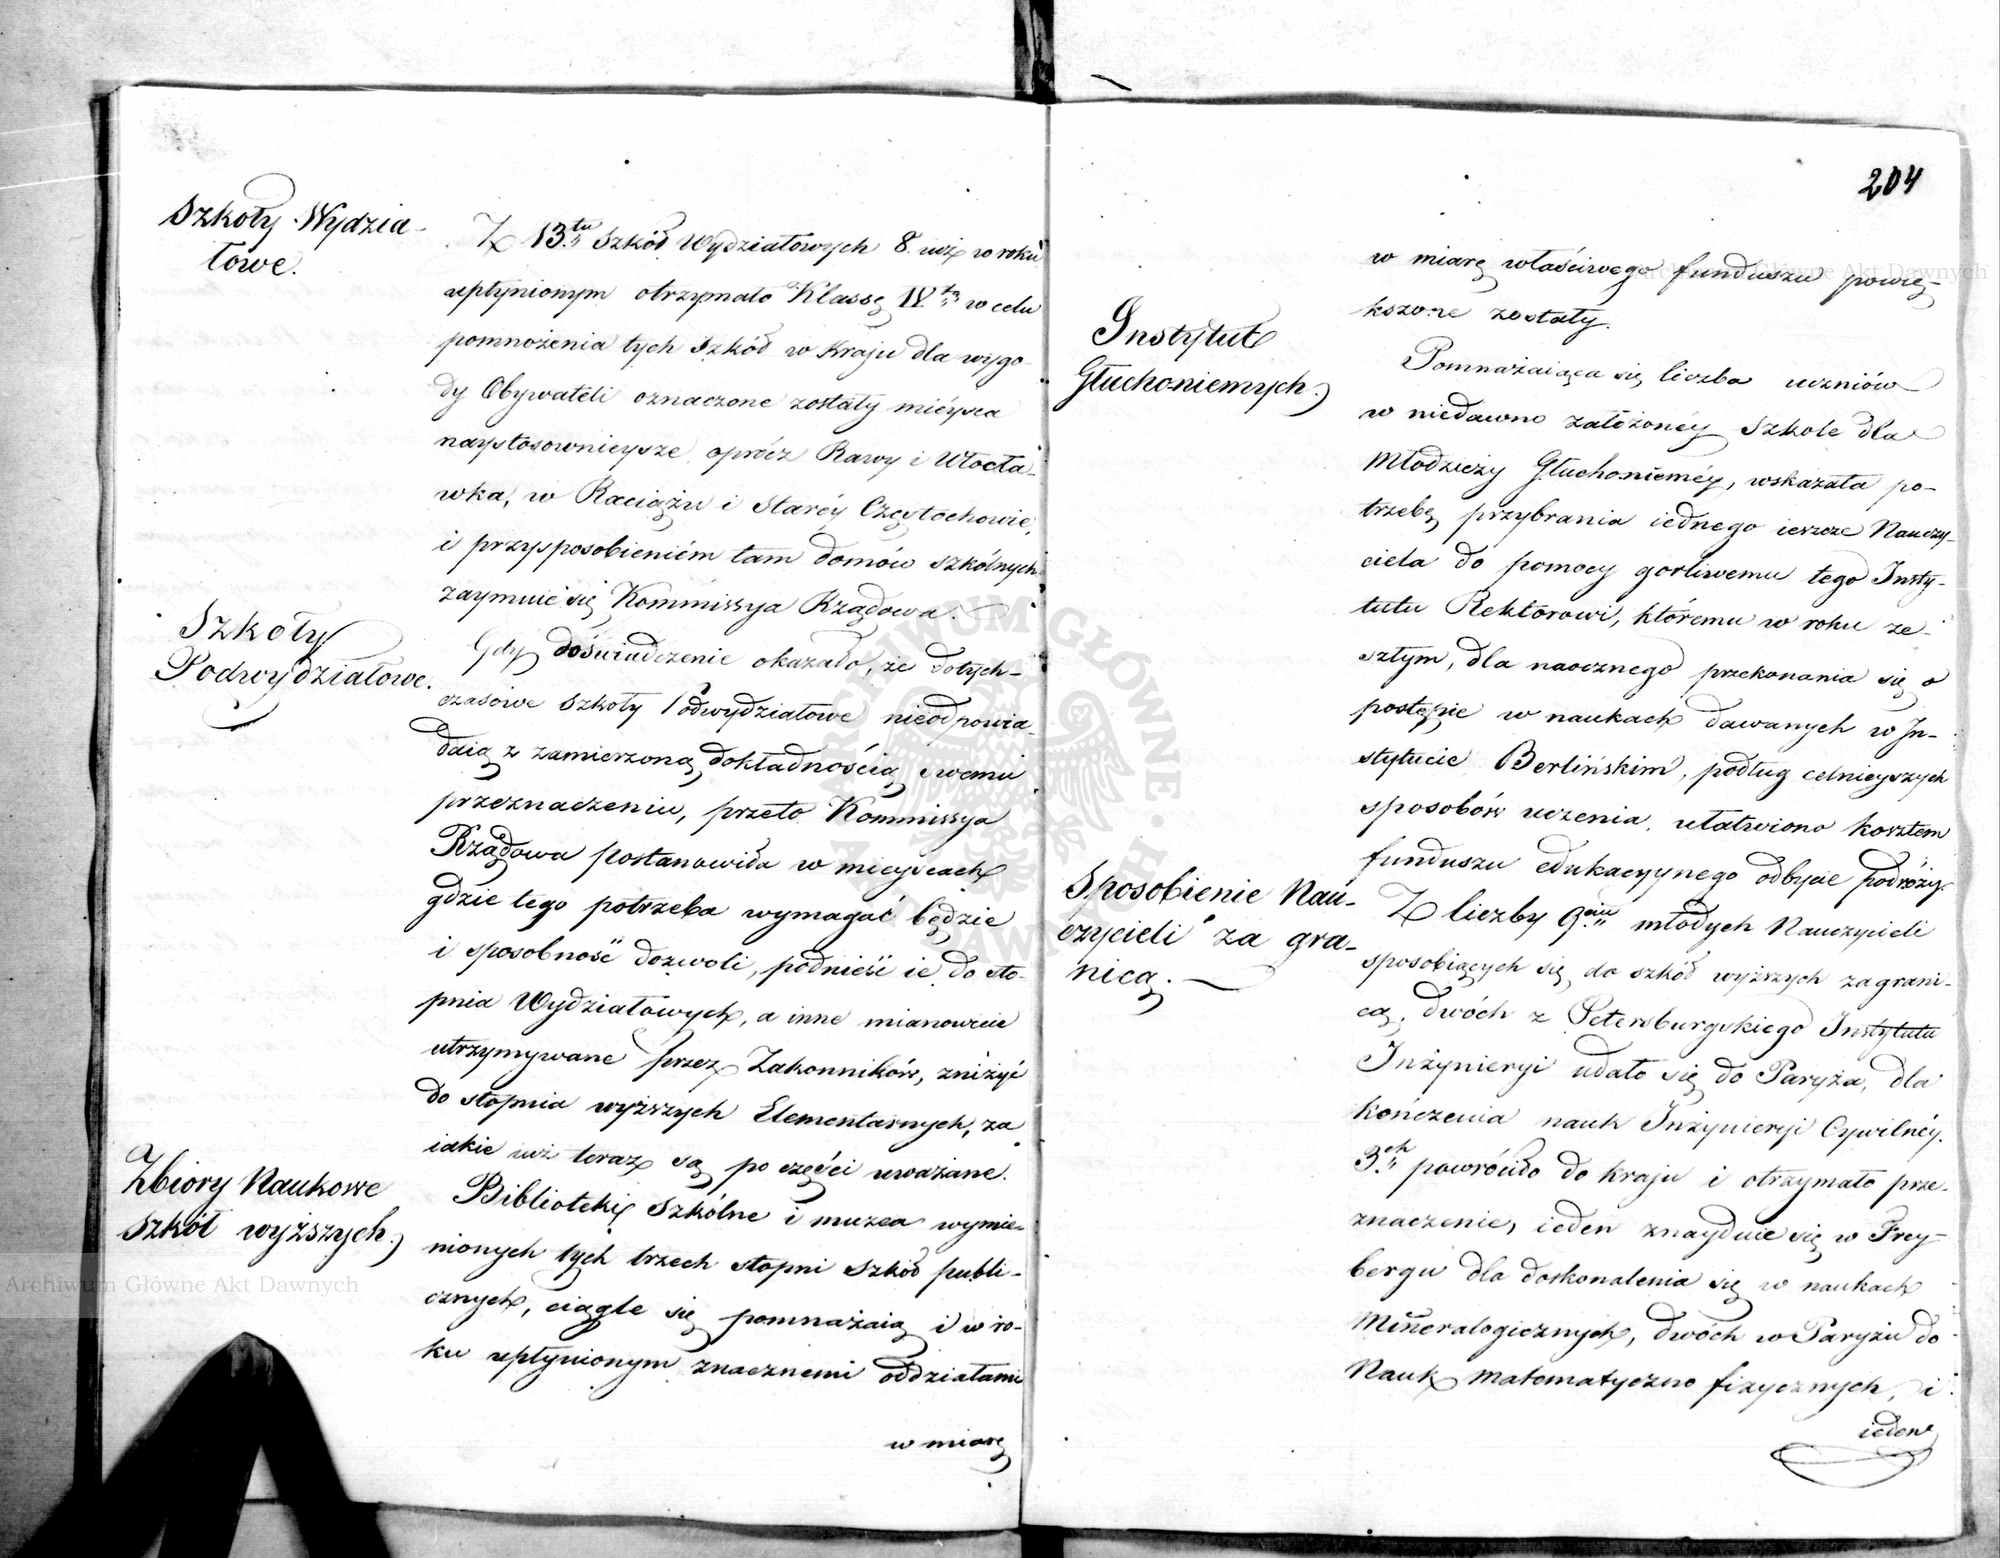 Szkoły Wydzia-
łowe.
Z 13.tu Szkół Wydziałowych 8. już w roku
upłynionym otrzymało Klassę IV.tą w celu
pomnożenia tych Szkół w Kraju dla wygo-
dy Obywateli oznaczone zostały mieysca
naystosownieysze oprócz Rawy i Włocła-
wka, w Raciążu i Staréy Częstochowie,
i przysposobieniém tam domów szkólnych
zaymuie się Kommissya Rządowa.
Szkoły
Podwydziałowe.
Gdy doświadczenie okazało, że dotych-
czasowe Szkoły Podwydziałowe nieodpowia-
daią z zamierzoną dokładnością swemu
przeznaczeniu, przeto Kommissya
Rządowa postanowiła w mieyscach
gdzie tego potrzeba wymagać będzie
i sposobność dozwoli, podnieść ie do sto-
pnia Wydziałowych, a inne mianowicie
utrzymywane przez Zakonników, zniżyć
do stopnia wyższych Elementarnych, za
iakie już teraz są po części uważane.
Zbiory Naukowe
Szkół wyższych.
Biblioteki Szkólne i muzea wymie-
nionych tych trzech stopni Szkół publi-
cznych, ciągle się pomnażaią i w ro-
ku upłynionym znacznemi oddziałami
w miarę
204
w miarę właściwego funduszu powię-
kszone zostały.
Instytut
Głuchoniemych.
Pomnażaiąca się liczba uczniów
w niedawno założonéy Szkole dla
Młodzieży Głuchonieméy, wskazała po-
trzebę przybrania iednego ieszcze Nauczy-
ciela do pomocy gorliwemu tego Insty-
tutu Rektorowi, któremu w roku ze-
szłym, dla naocznego przekonania się o
postępie w naukach dawanych w In-
stytucie Berlińskim, podług celnieyszych
sposobów uczenia, ułatwiono kosztem
funduszu edukacyynego odbycie podróży.
Sposobienie Nau-
czycieli za gra-
nicą.
Z liczby 9.ciu młodych Nauczycieli
sposobiących się do szkół wyższych zagrani-
cą, dwóch z Petersburgskiego Instytutu
Inżynieryi udało się do Paryża, dla
kończenia nauk Inżynieryi Cywilnéy.
3.ch powróciło do kraju i otrzymało prze-
znaczenie, ieden znayduie się w Frey-
bergu dla doskonalenia się w naukach
Mineralogicznych, dwóch w Paryżu do
Nauk matematyczno fizycznych, i
ieden
Archiwum Główne Akt Dawnych
ARCHIWUM GŁÓWNE AKT DAWNYCH